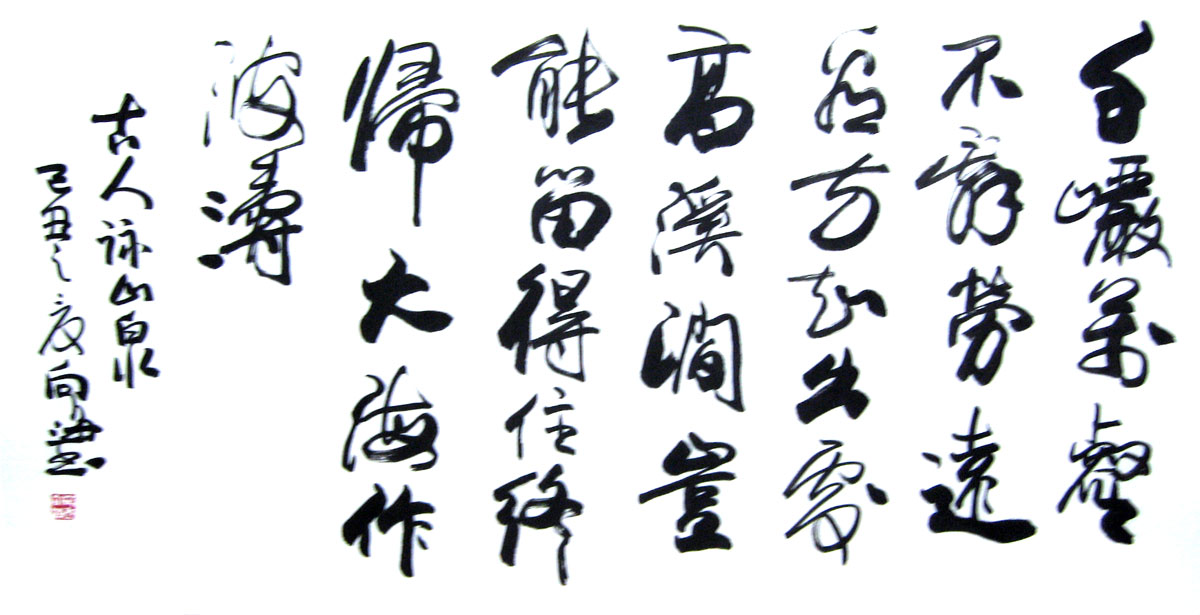 千巖萬壑
不辭勞遠
看方知出處
高溪澗豈
能留得住終
歸大海作
波濤
古人詠山泉
己丑之夏向